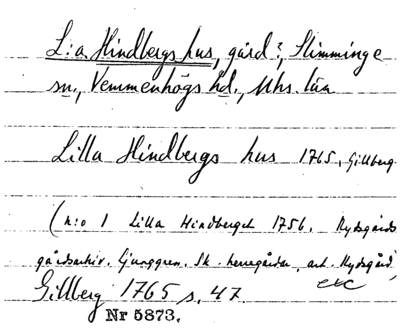 L:a Hindbergs hus, gård?, Slimminge
sn., Vemmenhögs hd., Mhs. län
Lilla Hindbergs hus 1765, Gillberg
(n:o 1 Lilla Hindberget 1756. Rydsgårds
gårdsarkiv. Ljunggren. Sk. herregårdar, art. Rydsgård
etc
Gillberg 1765 s. 47
Nr 5873.